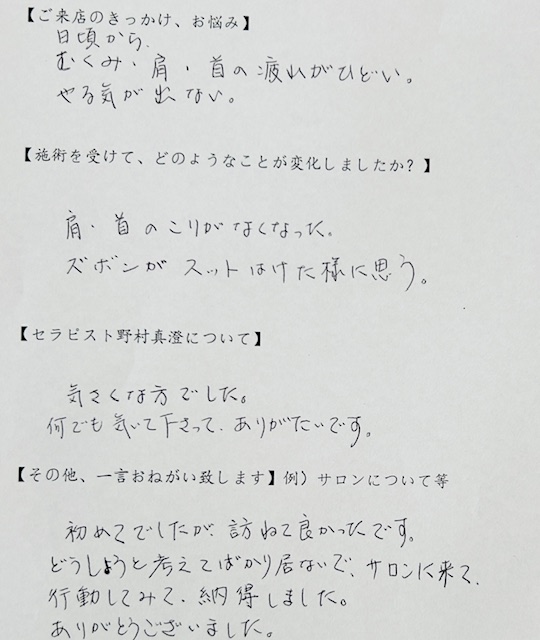 【ご来店のきっかけ、お悩み】
日頃から、
むくみ・肩・首の疲れがひどい。
やる気が出ない。
【施術を受けて、どのようなことが変化しましたか？】
肩・首のこりがなくなった。
ズボンがスットはけた様に思う。
【セラピスト野村真澄について】
気さくな方でした。
何でも気いて下さって、ありがたいです。
【その他、一言おねがい致します】例）サロンについて等
初めてでしたが、訪ねて良かったです。
どうしようと考えてばかり居ないで、サロンに来て、
行動してみて、納得しました。
ありがとうございました。